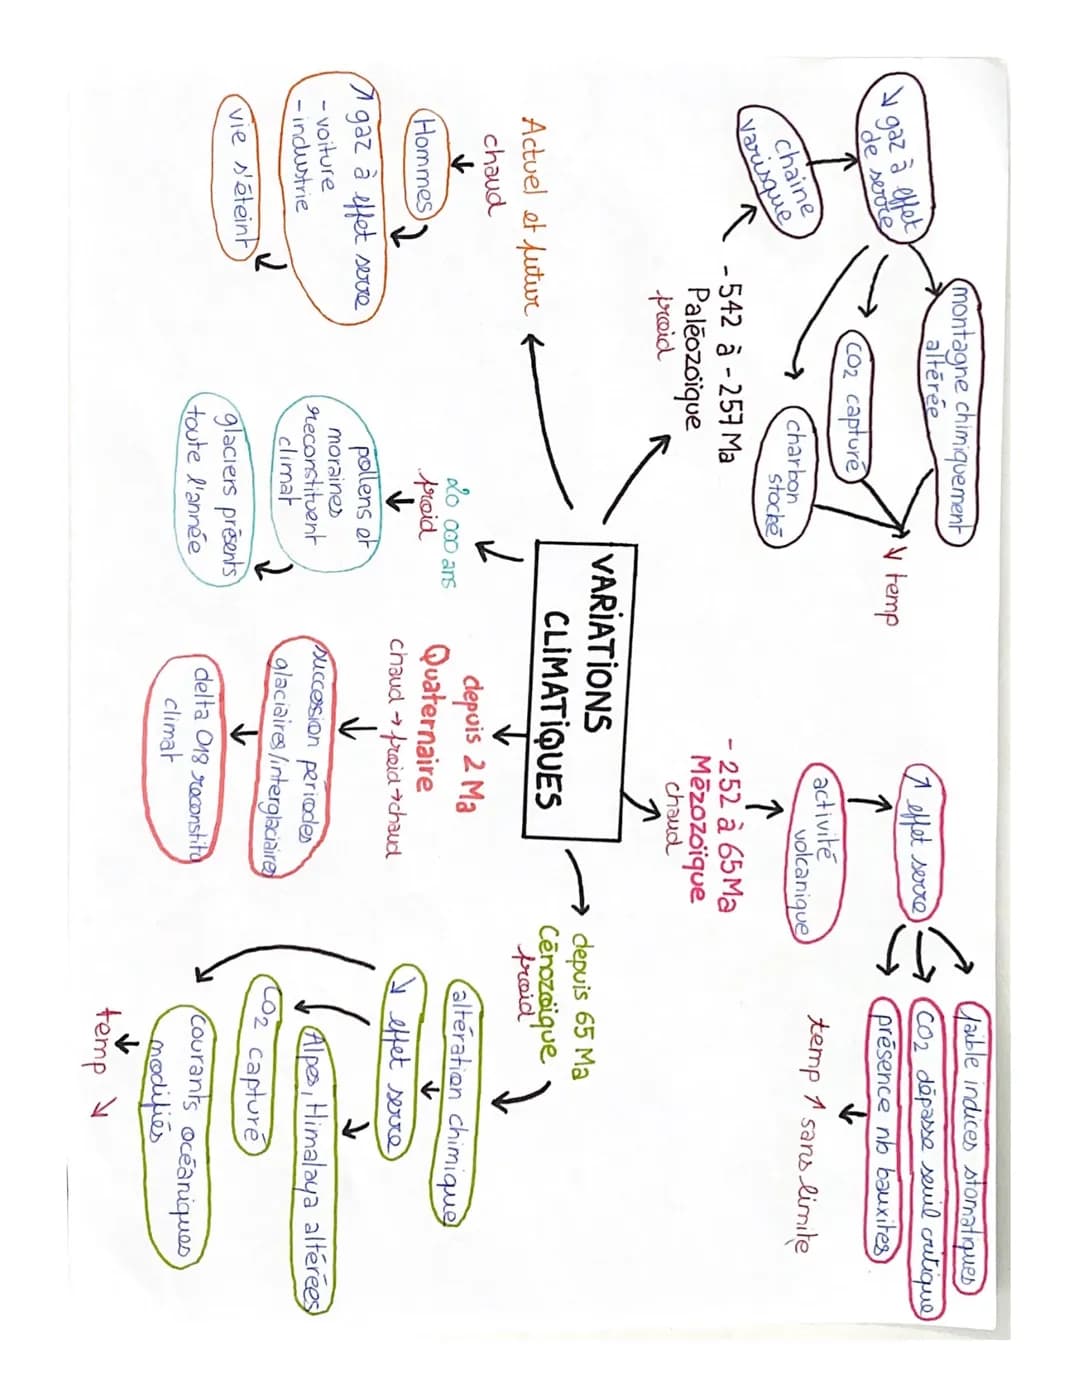 VARIATIONS
CLIMATIQUES
-542 à -257 Ma
Paléozoïque
froid
chaine
varisque
↘ gaz à effet
de serre
montagne chimiquement
altérée
CO2 capturé
charbon
stocké
↘ temp
- 252 à 65 Ma
Mézozoïque
chaud
activité
volcanique
↗ effet serre
faible indices stomatiques
CO2 dépasse seuil critique
présence nb bauxites
temp ↗ sans limite
depuis 65 Ma
Cénozoïque
froid
altération chimique
↘ effet serre
Alpes, Himalaya altérées
CO2 capturé
courants océaniques
modifiés
temp ↘
depuis 2 Ma
Quaternaire
chaud → froid → chaud
succession périodes
glaciaires/interglaciaires
delta O18 reconstitu
climat
20 000 ans
froid
pollens et
moraines
reconstituent
climat
glaciers présents
toute l'année
Actuel et futur
chaud
Hommes
↗ gaz à effet serre
- voiture
- industrie
vie s'éteint